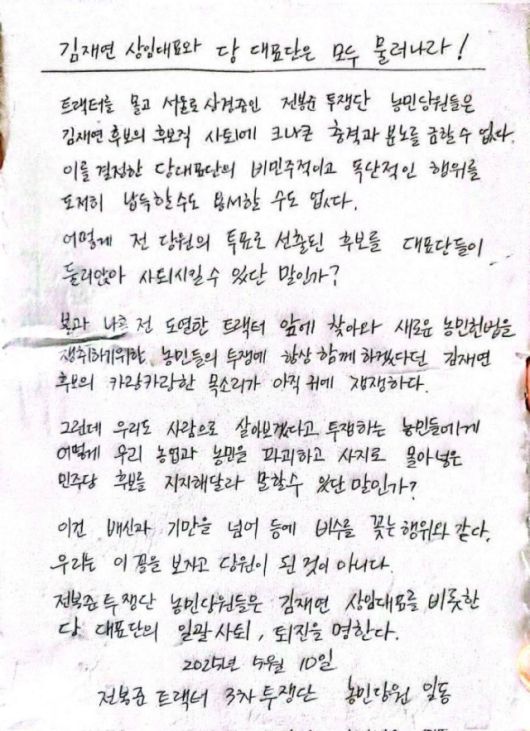 김재연 상임대표와 당 대표단은 모두 물러나라!
트랙터를 몰고 서울로 상경중인 전봉준 투쟁단 농민당원들은
김재연 후보의 후보직 사퇴에 크나큰 충격과 분노를 금할수 없다.
이를 결정한 당대표단의 비민주적이고 독단적인 행위를
도저히 납득할수도 용서할 수도 없다.
어떻게 전 당원의 투표로 선출된 후보를 대표단들이
둘러앉아 사퇴시킬수 있단 말인가?
불과 나흘 전 도열한 트랙터 앞에 찾아와 새로운 농민헌법을
쟁취하기위한 농민들의 투쟁에 항상 함께 하겠다던 김재연
후보의 카랑카랑한 목소리가 아직 귀에 쟁쟁하다.
그런데 우리도 사람으로 살아보겠다고 투쟁하는 농민들에게
어떻게 우리 농업과 농민을 파괴하고 사지로 몰아넣은
민주당 후보를 지지해달라 말할수 있단 말인가?
이건 배신과 기만을 넘어 등에 비수를 꽂는 행위와 같다.
우리는 이 꼴을 보자고 당원이 된 것이 아니다.
전봉준 투쟁단 농민당원들은 김재연 상임대표를 비롯한
당 대표단의 일괄 사퇴, 퇴진을 명한다.
2025년 5월 10일
전봉준 트랙터 3차 투쟁단 농민당원 일동